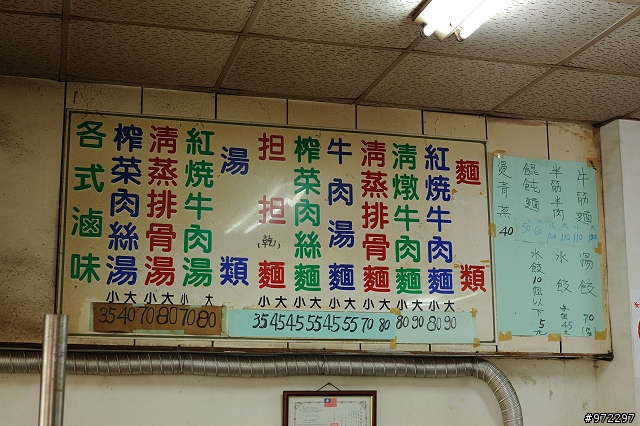 麵類
紅燒牛肉麵 小大 80 90
清燉牛肉麵 小大 80 90
清蒸排骨麵 小大 70 80
牛肉湯麵 小大 45 55
榨菜肉絲麵 小大 45 55
担担麵(乾) 小大 35 45
湯類
紅燒牛肉湯 小大 70 80
清蒸排骨湯 小大 70 80
榨菜肉絲湯 小大 35 40
各式滷味
牛筋麵
半筋半肉
餛飩麵
燙青菜 40
湯餃 70
水餃
水餃10粒以下5元
#972297